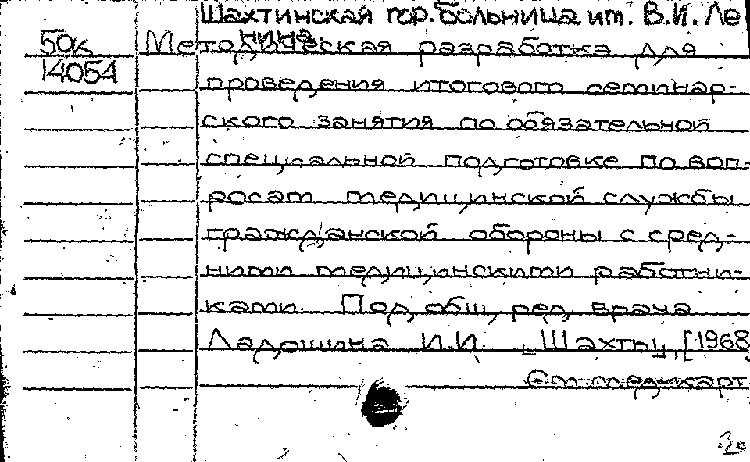 Шахтинская гор. больница им. В.И. Ле
нина.
50к Методическая разработка для
14054 проведения итогового семинар-
ского занятия по обязательной
специальной подготовке по воп-
росам медицинской службы
гражданской обороны с сред-
ними медицинскими работни-
ками. Под общ. ред. врача
Ладошина И.И. Шахты, [1968